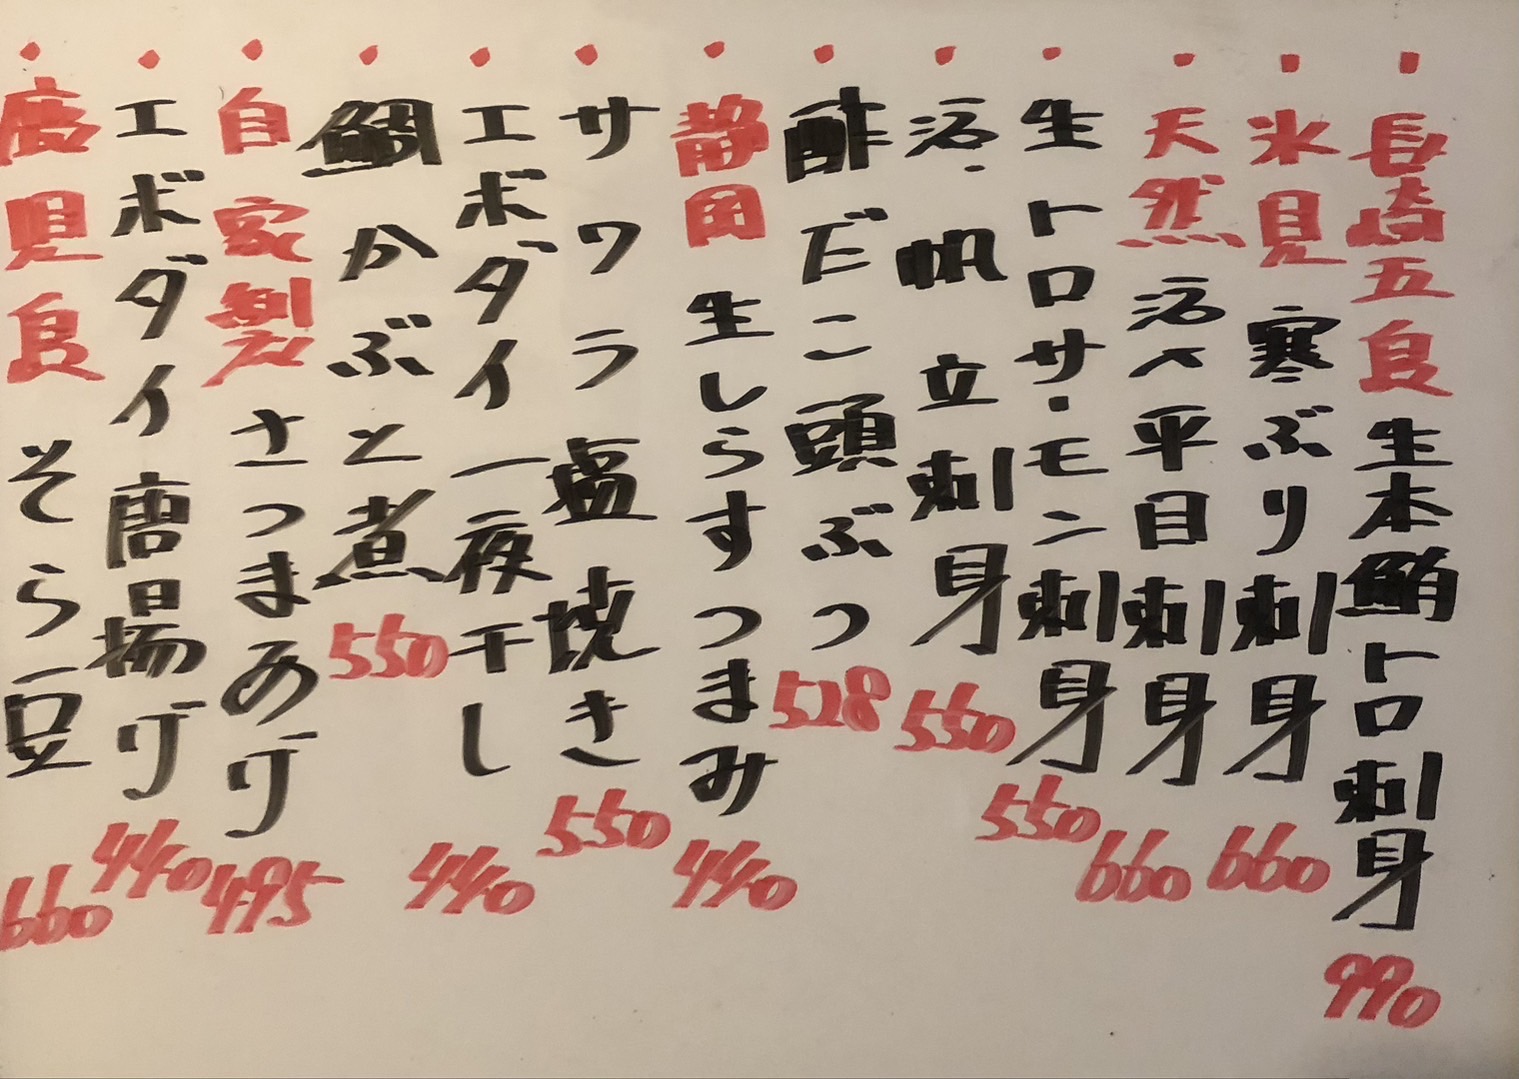 ・長崎五島生本鮪トロ刺身 990
・氷見寒ぶり刺身 660
・天然活〆平目刺身 660
・生トロサーモン刺身 550
・活帆立刺身 550
・酢だこ頭ぶつ 528
・静岡生しらすつまみ 440
・サワラ塩焼き 550
・エボダイ一夜干し 440
・鯛かぶと煮 550
・自家製さつまあげ 495
・エボダイ唐揚げ 440
・鹿児島そら豆 660